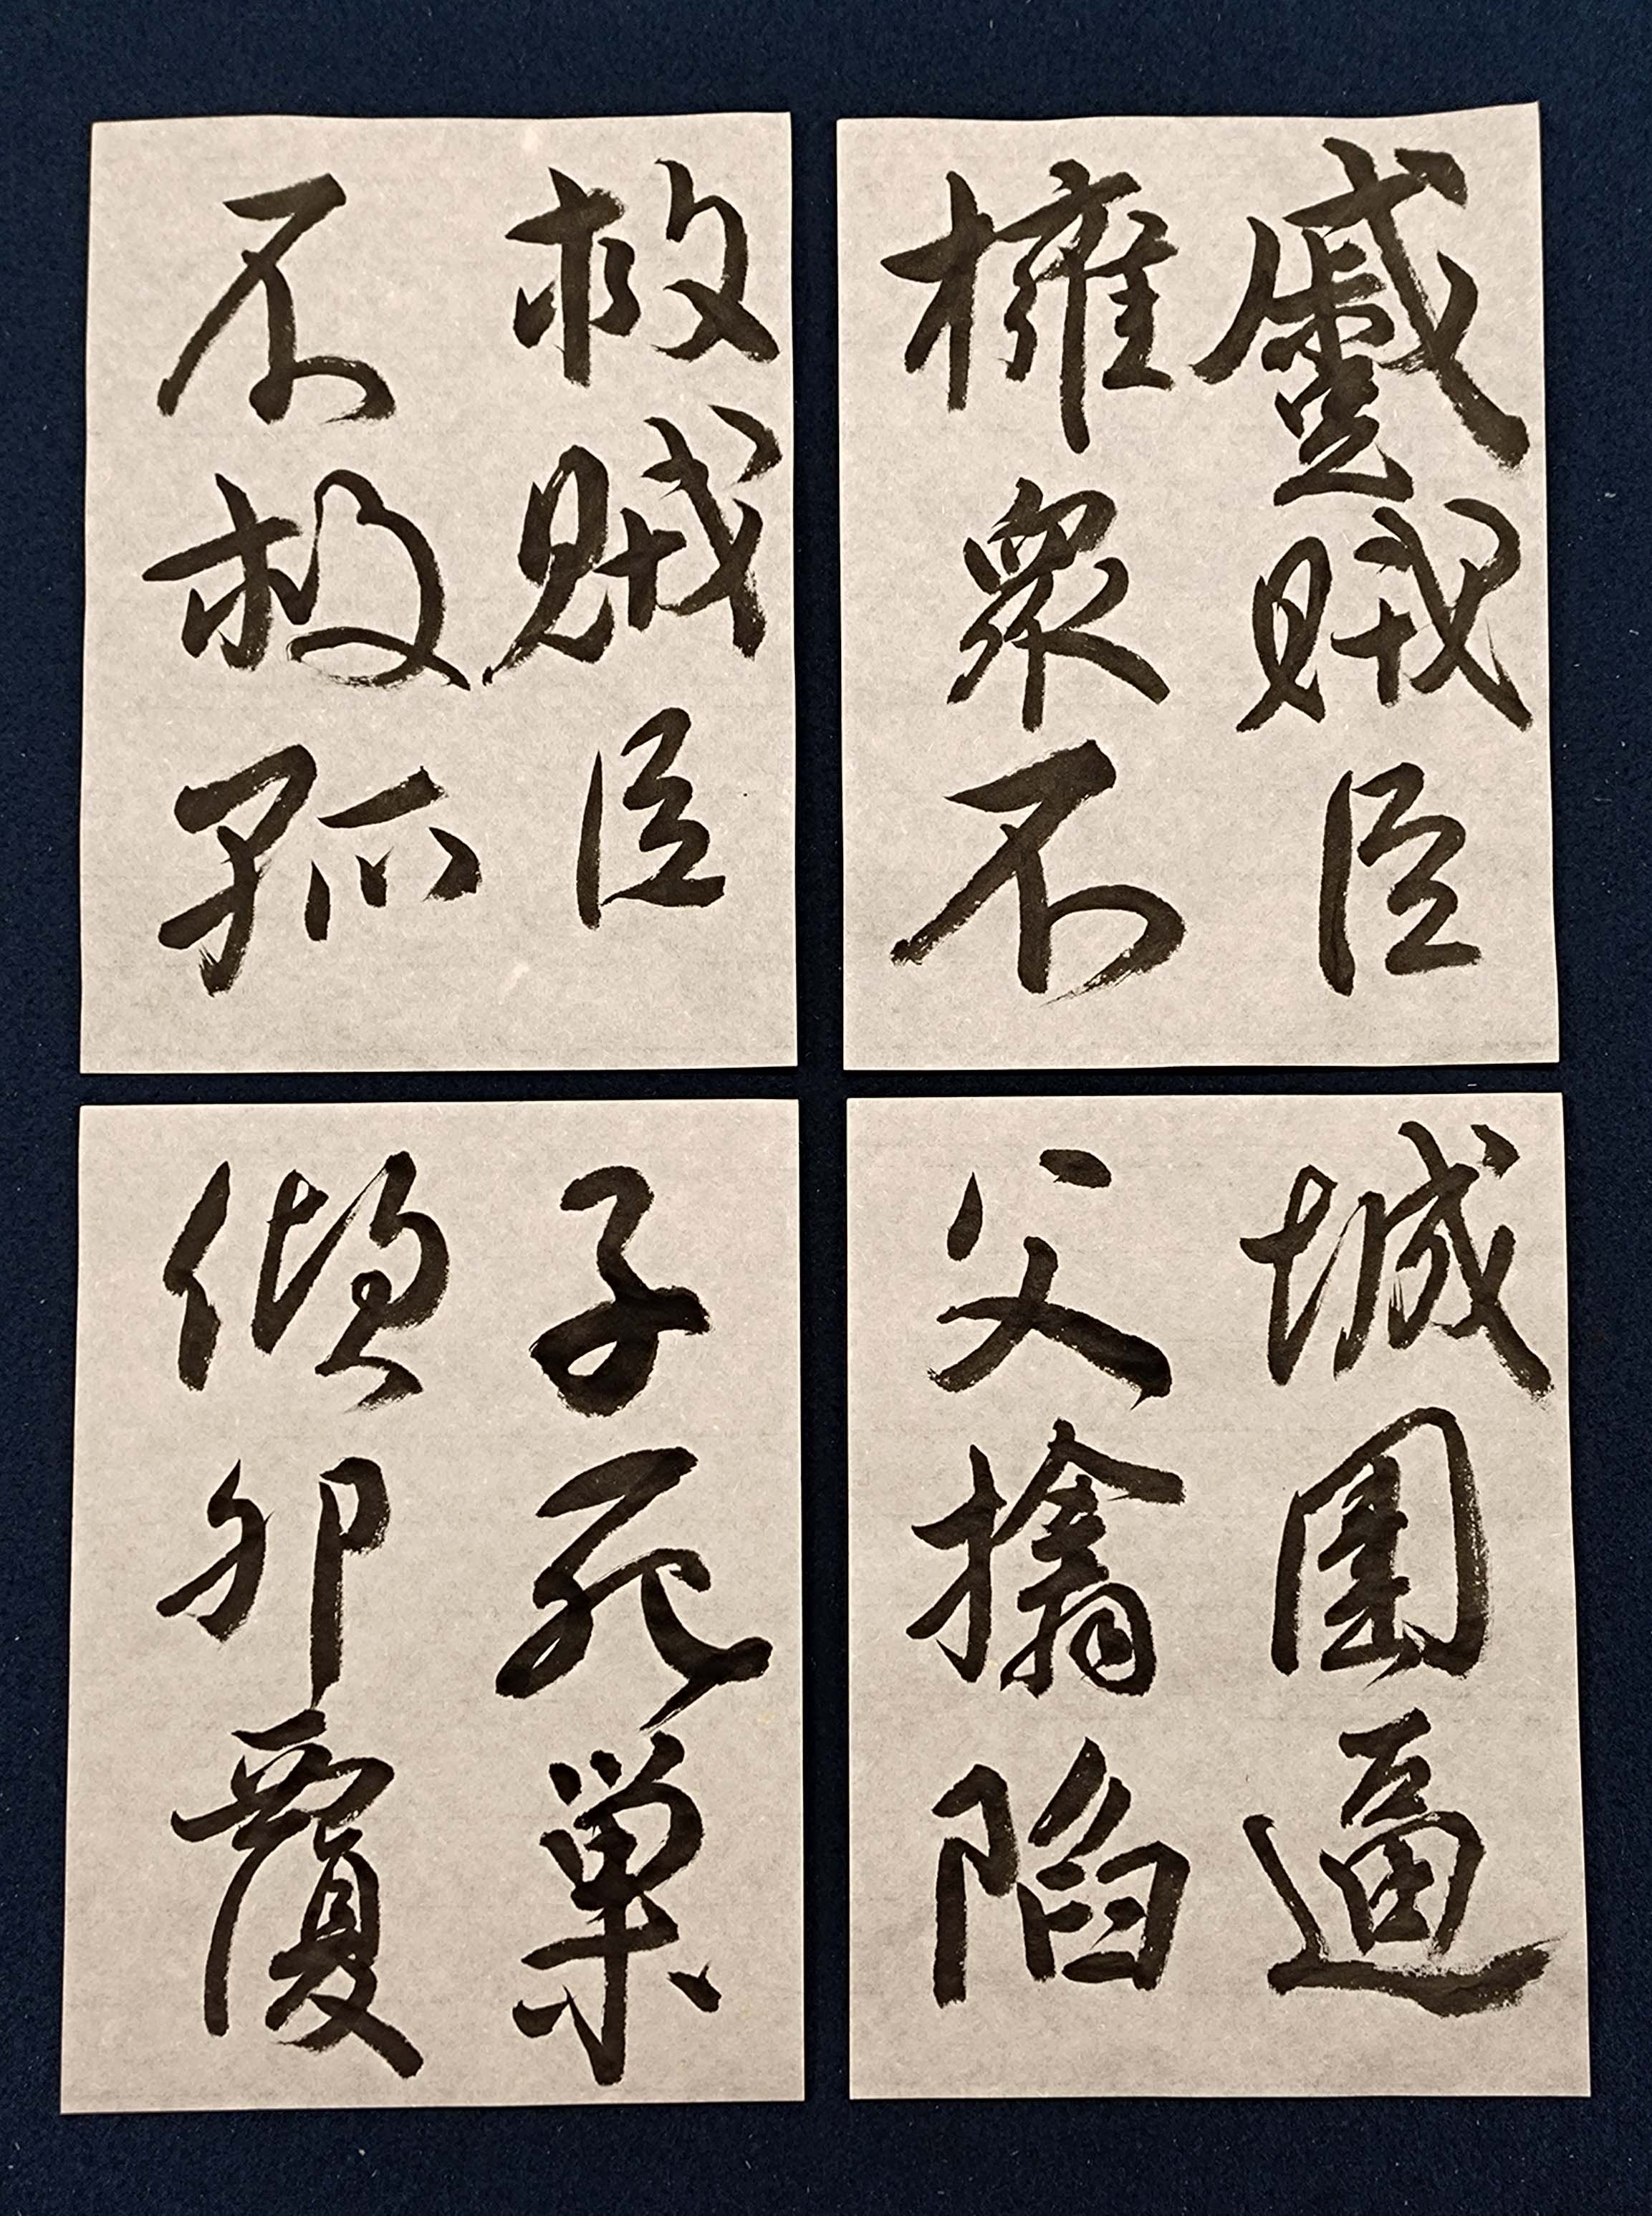 蹙賊臣
擁衆不
救賊臣
不救孤
城圍逼
父擒陷
子死巢
傾卵覆